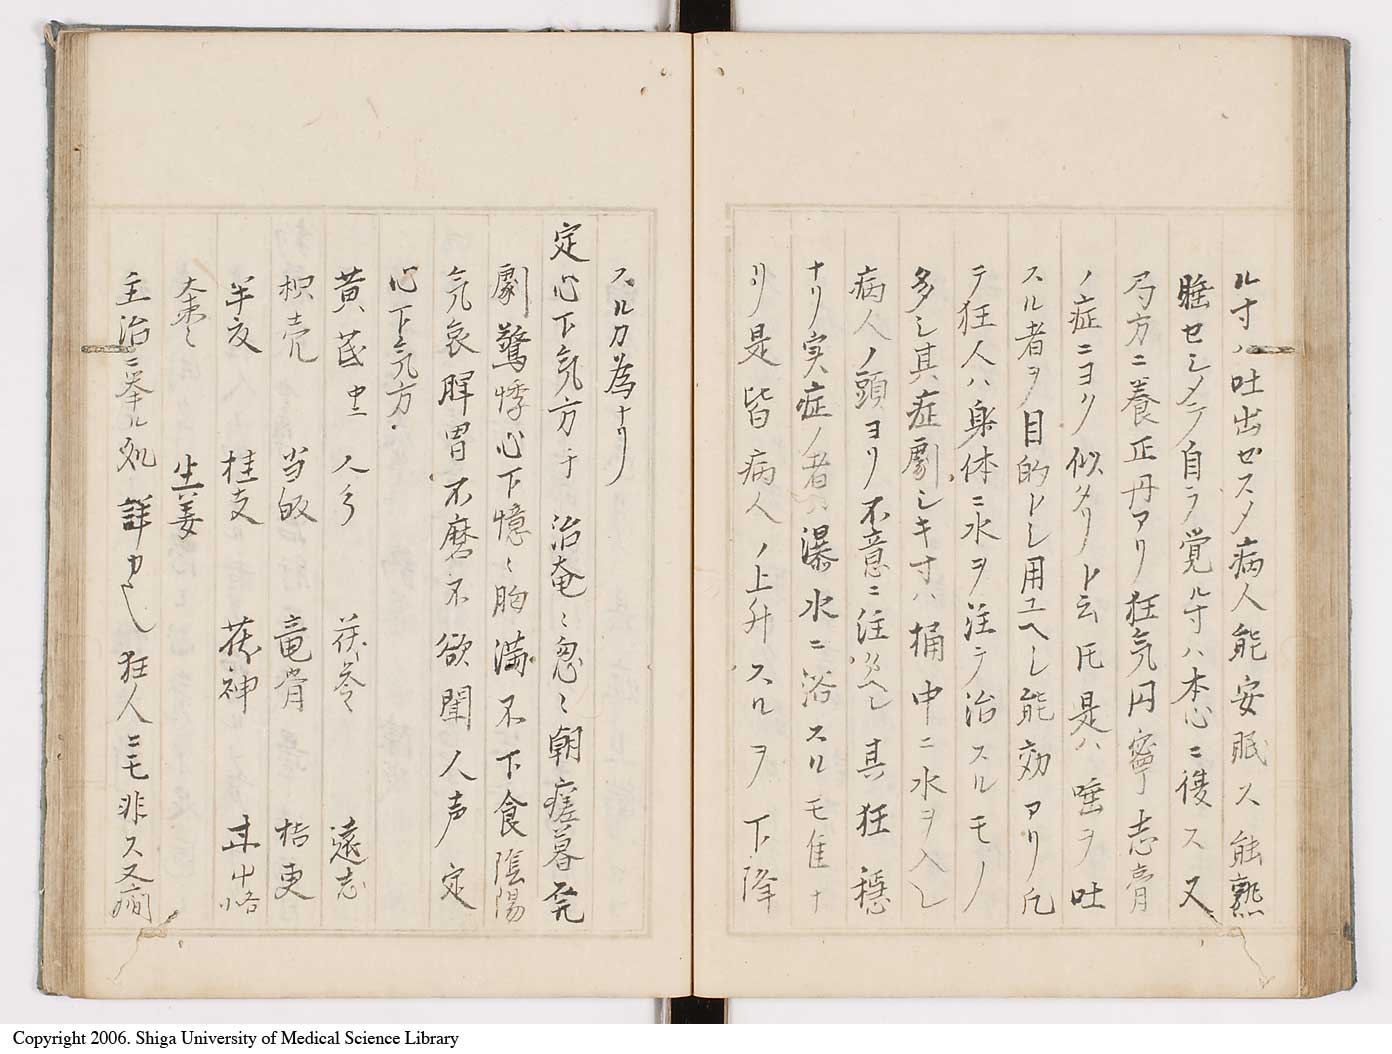 ルヿハ吐出セスメ病人能安眠ス能熟
睡セシメテ自ラ覚ルヿハ本心ニ復ス又
弓方ニ養正丹アリ狂気円寧志膏
ノ症ニヨリ似タリト云𪜈是ハ唾ヲ吐
スル者ヲ目的トシ用ユヘシ能効アリ凡
テ狂人ハ身体ニ水ヲ注テ治スルモノ
多シ其症劇シキヿハ桶中ニ水ヲ入レ
病人ノ頭ヨリ不意ニ注クヘシ其狂穏
ナリ実症ノ者ハ瀑水ニ浴スルモ隹ナ
リ是皆病人ノ上升スルヲ下降
スルカ為ナリ
定心下気方于 治奄〻忽〻朝瘥暮発
劇驚悸心下憶〻胸満不下食陰陽
気衰脾胃不磨不欲聞人声定
心下気方
黄芪 中 人参 茯苓 遠志
枳壳 当皈 竜骨 桔更
半夏 桂支 茯神 甘中
大棗〻 生姜
主治ニ挙ル処 詳カ也 狂人ニモ非ス又癇
Copyright 2006. Shiga University of Medical Science Library